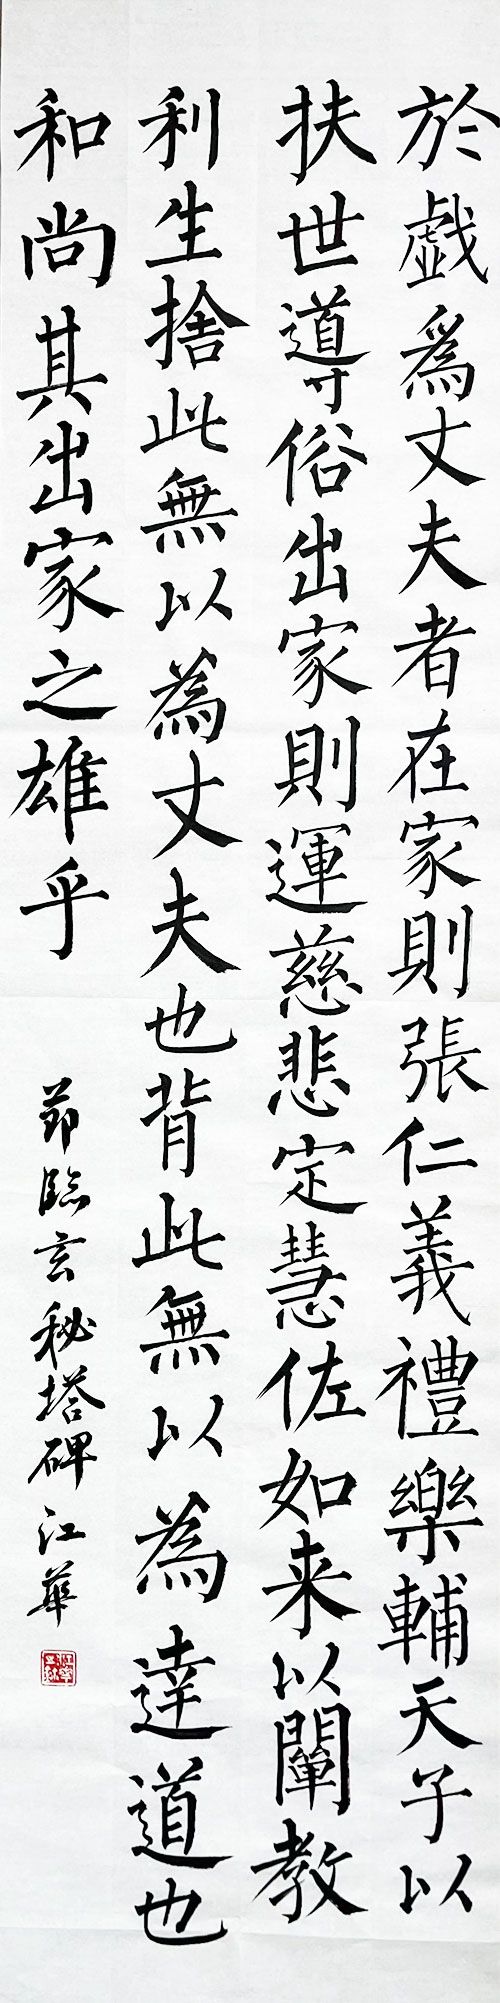 於戲為丈夫者在家則張仁義禮樂輔天子以
扶世導俗出家則運慈悲定慧佐如来以闡教
利生捨此無以為丈夫也背此無以為達道也
和尚其出家之雄乎
節臨玄秘塔碑江華